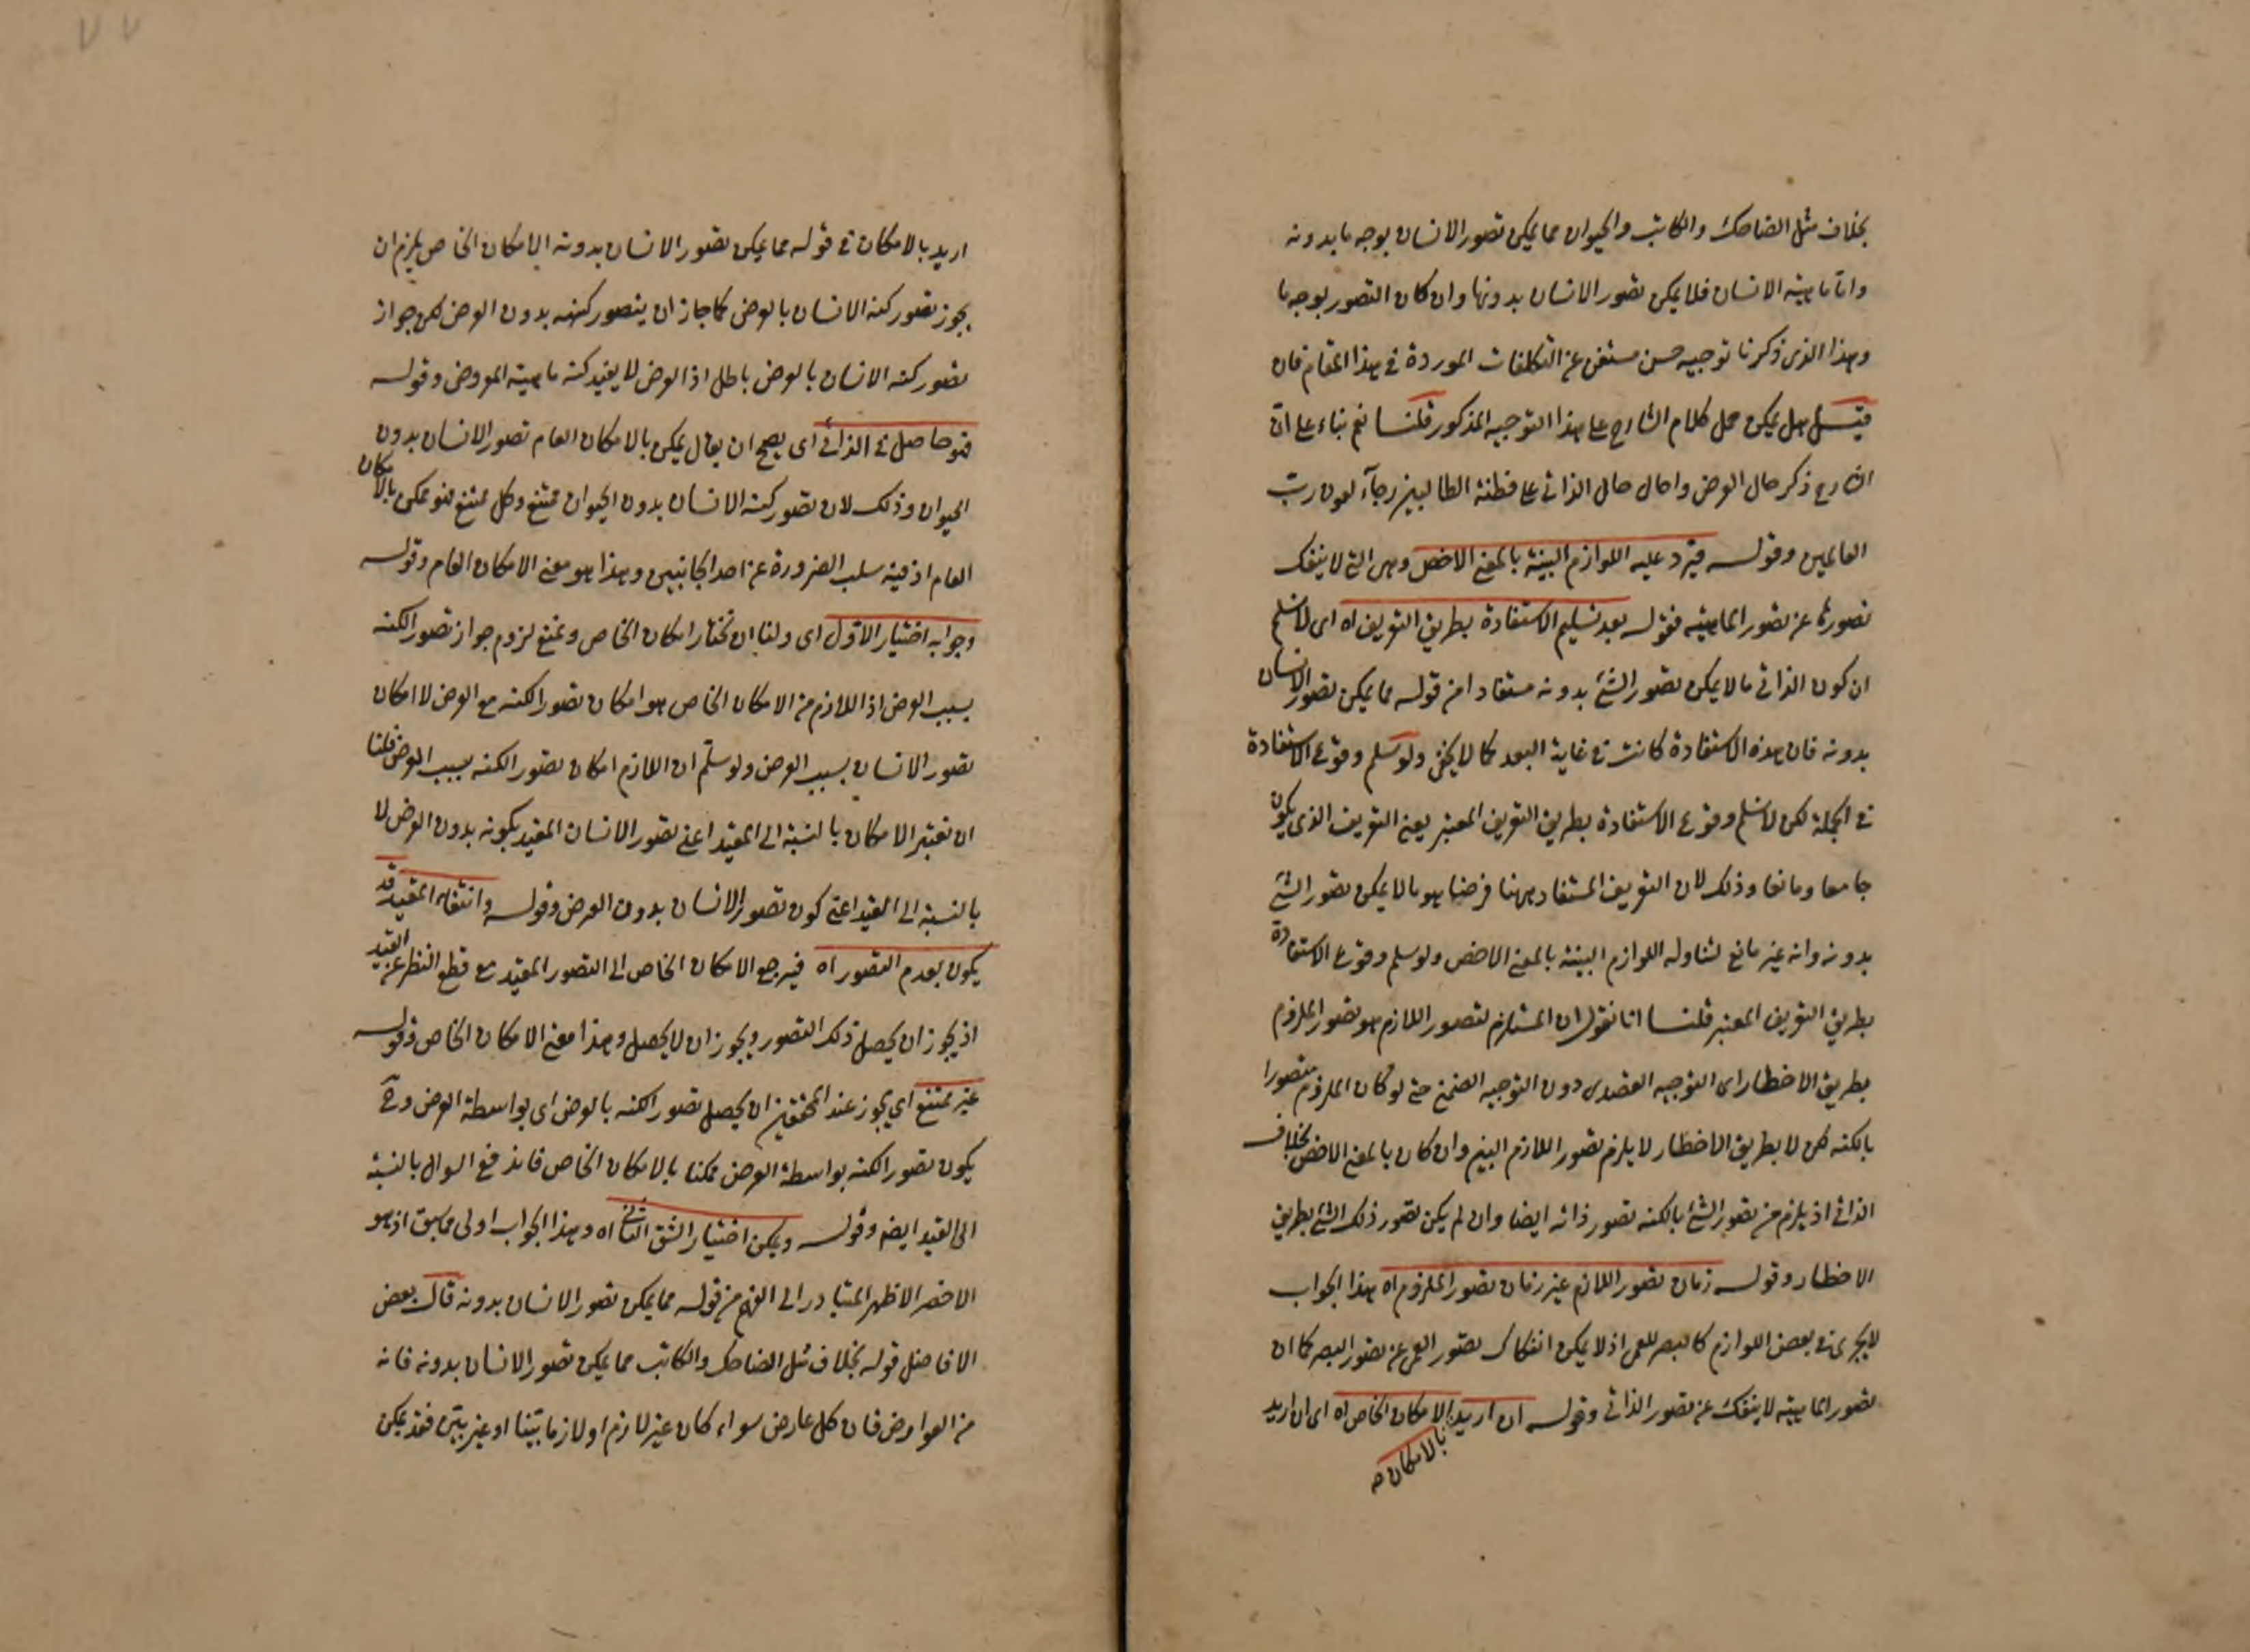 بخلاف مثل الضاحك والكاتب والحيوان مما يمكن تصور الانسان بوجه ما بدونه
واما ماهية الانسان فلا يمكن تصور الانسان بدونها وان كان التصور بوجه ما
وهذا الذى ذكرنا توجيه حسن مستغن عن التكلفات الموردة فى هذا المقام فان
قيل هل يمكن حمل كلام الشارح على هذا التوجيه المذكور قلنا نعم بناء على ان
الشارح ذكر حال العرض واحال حال الذاتى على فطنة الطالبين رجآء لعون رب
العالمين وقوله فيرد عليه اللوازم البينة بالمعنى الاخص وهى التى لا ينفك
تصورها عن تصور الماهية فقوله بعد تسليم الاستفادة بطريق التعريف اه اى لا نسلم
ان كون الذاتى ما لا يمكن تصور الشئ بدونه مستفادا من قوله مما يمكن تصور الانسان
بدونه فان هذه الاستفادة كانت فى غاية البعد كما لا يخفى ولو سلم وقوع الاستفادة
فى الجملة لكن لا نسلم وقوع الاستفادة بطريق التعريف المعتبر يعنى التعريف الذى يكون
جامعا ومانعا وذلك لان التعريف المستفاد ههنا فرضا هو ما لا يمكن تصور الشئ
بدونه وانه غير مانع لتناوله اللوازم البينة بالمعنى الاخص ولو سلم وقوع الاستفادة
بطريق التعريف المعتبر قلنا انا نقول ان المستلزم لتصور اللازم هو تصور الملزوم
بطريق الاخطار اى التوجيه القصدى دون التوجيه الضمنى حتى لو كان الملزوم متصورا
بالكنه لكن لا بطريق الاخطار لا يلزم تصور اللازم البين وان كان بالمعنى الاخص بخلاف
الذاتى اذ يلزم من تصور الشئ بالكنه تصور ذاته ايضا وان لم يكن تصور ذلك الشئ بطريق
الاخطار وقوله زمان تصور اللازم غير زمان تصور الملزوم اه هذا الجواب
لا يجرى فى بعض اللوازم كالبصر للعمى اذ لا يمكن انفكاك تصور العمى عن تصور البصر كما ان
تصور الماهية لا ينفك عن تصور الذاتى وقوله ان اريد الامكان الخاص اه اى ان اريد
بالامكان صه
اريد بالامكان فى قوله مما يمكن تصور الانسان بدونه الامكان الخاص يلزم ان
يجوز تصور كنه الانسان بالعرض كما جاز ان يتصور كنهه بدون العرض لكن جواز
تصور كنه الانسان بالعرض باطل اذ العرض لا يفيد كنه ماهية المعروض وقوله
فهو حاصل فى الذاتى اى يصح ان يقال يمكن بالامكان العام تصور الانسان بدون
الحيوان وذلك لان تصور كنه الانسان بدون الحيوان ممتنع وكل ممتنع فهو ممكن بالامكان
العام اذ فيه سلب الضرورة عن احد الجانبين وهذا هو معنى الامكان العام وقوله
وجوابه اختيار الاول اى ولنا ان نختار امكان الخاص ونمنع لزوم جواز تصور الكنه
بسبب العرض اذ اللازم من الامكان الخاص هو امكان تصور الكنه مع العرض لا امكان
تصور الانسان بسبب العرض ولو سلم ان اللازم امكان تصور الكنه بسبب العرض قلنا
ان نعتبر الامكان بالنسبة الى المقيد اعنى تصور الانسان المقيد بكونه بدون العرض لا
بالنسبة الى القيد اعنى كون تصور الانسان بدون العرض وقوله وانتفاء المقيد قد
يكون بعدم التصور اه فيرجع الامكان الخاص الى التصور المقيد مع قطع النظر عن القيد
اذ يجوز ان يحصل ذلك التصور ويجوز ان لا يحصل وهذا معنى الامكان الخاص وقوله
غير ممتنع اى يجوز عند المحققين ان يحصل تصور الكنه بالعرض اى بواسطة العرض وح
يكون تصور الكنه بواسطة العرض ممكنا بالامكان الخاص فاندفع السوال بالنسبة
الى القيد ايضا وقوله ويمكن اختيار الشق الثانى اه وهذا الجواب اولى مما سبق اذ هو
الاخصر الاظهر المتبادر الى الفهم من قوله مما يمكن تصور الانسان بدونه قال بعض
الافاضل قوله بخلاف مثل الضاحك والكاتب مما يمكن تصور الانسان بدونه فانه
من العوارض فان كل عارض سواء كان غير لازم او لازما بينا او غير بين فقد يمكن